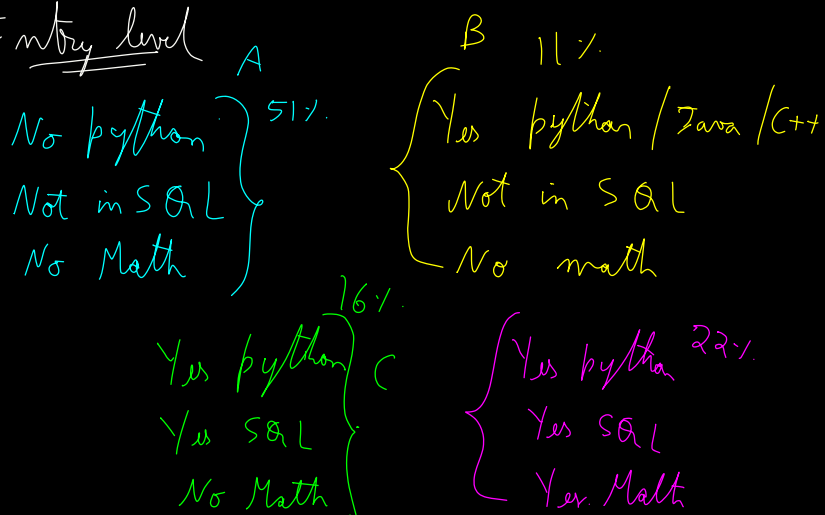 Entry level
A
51%
No python
Not in SQL
No Math
B
11%
Yes python / Java / C++
Not in SQL
No math
16%
C
Yes python
Yes SQL
No Math
22%
Yes python
Yes SQL
Yes Math